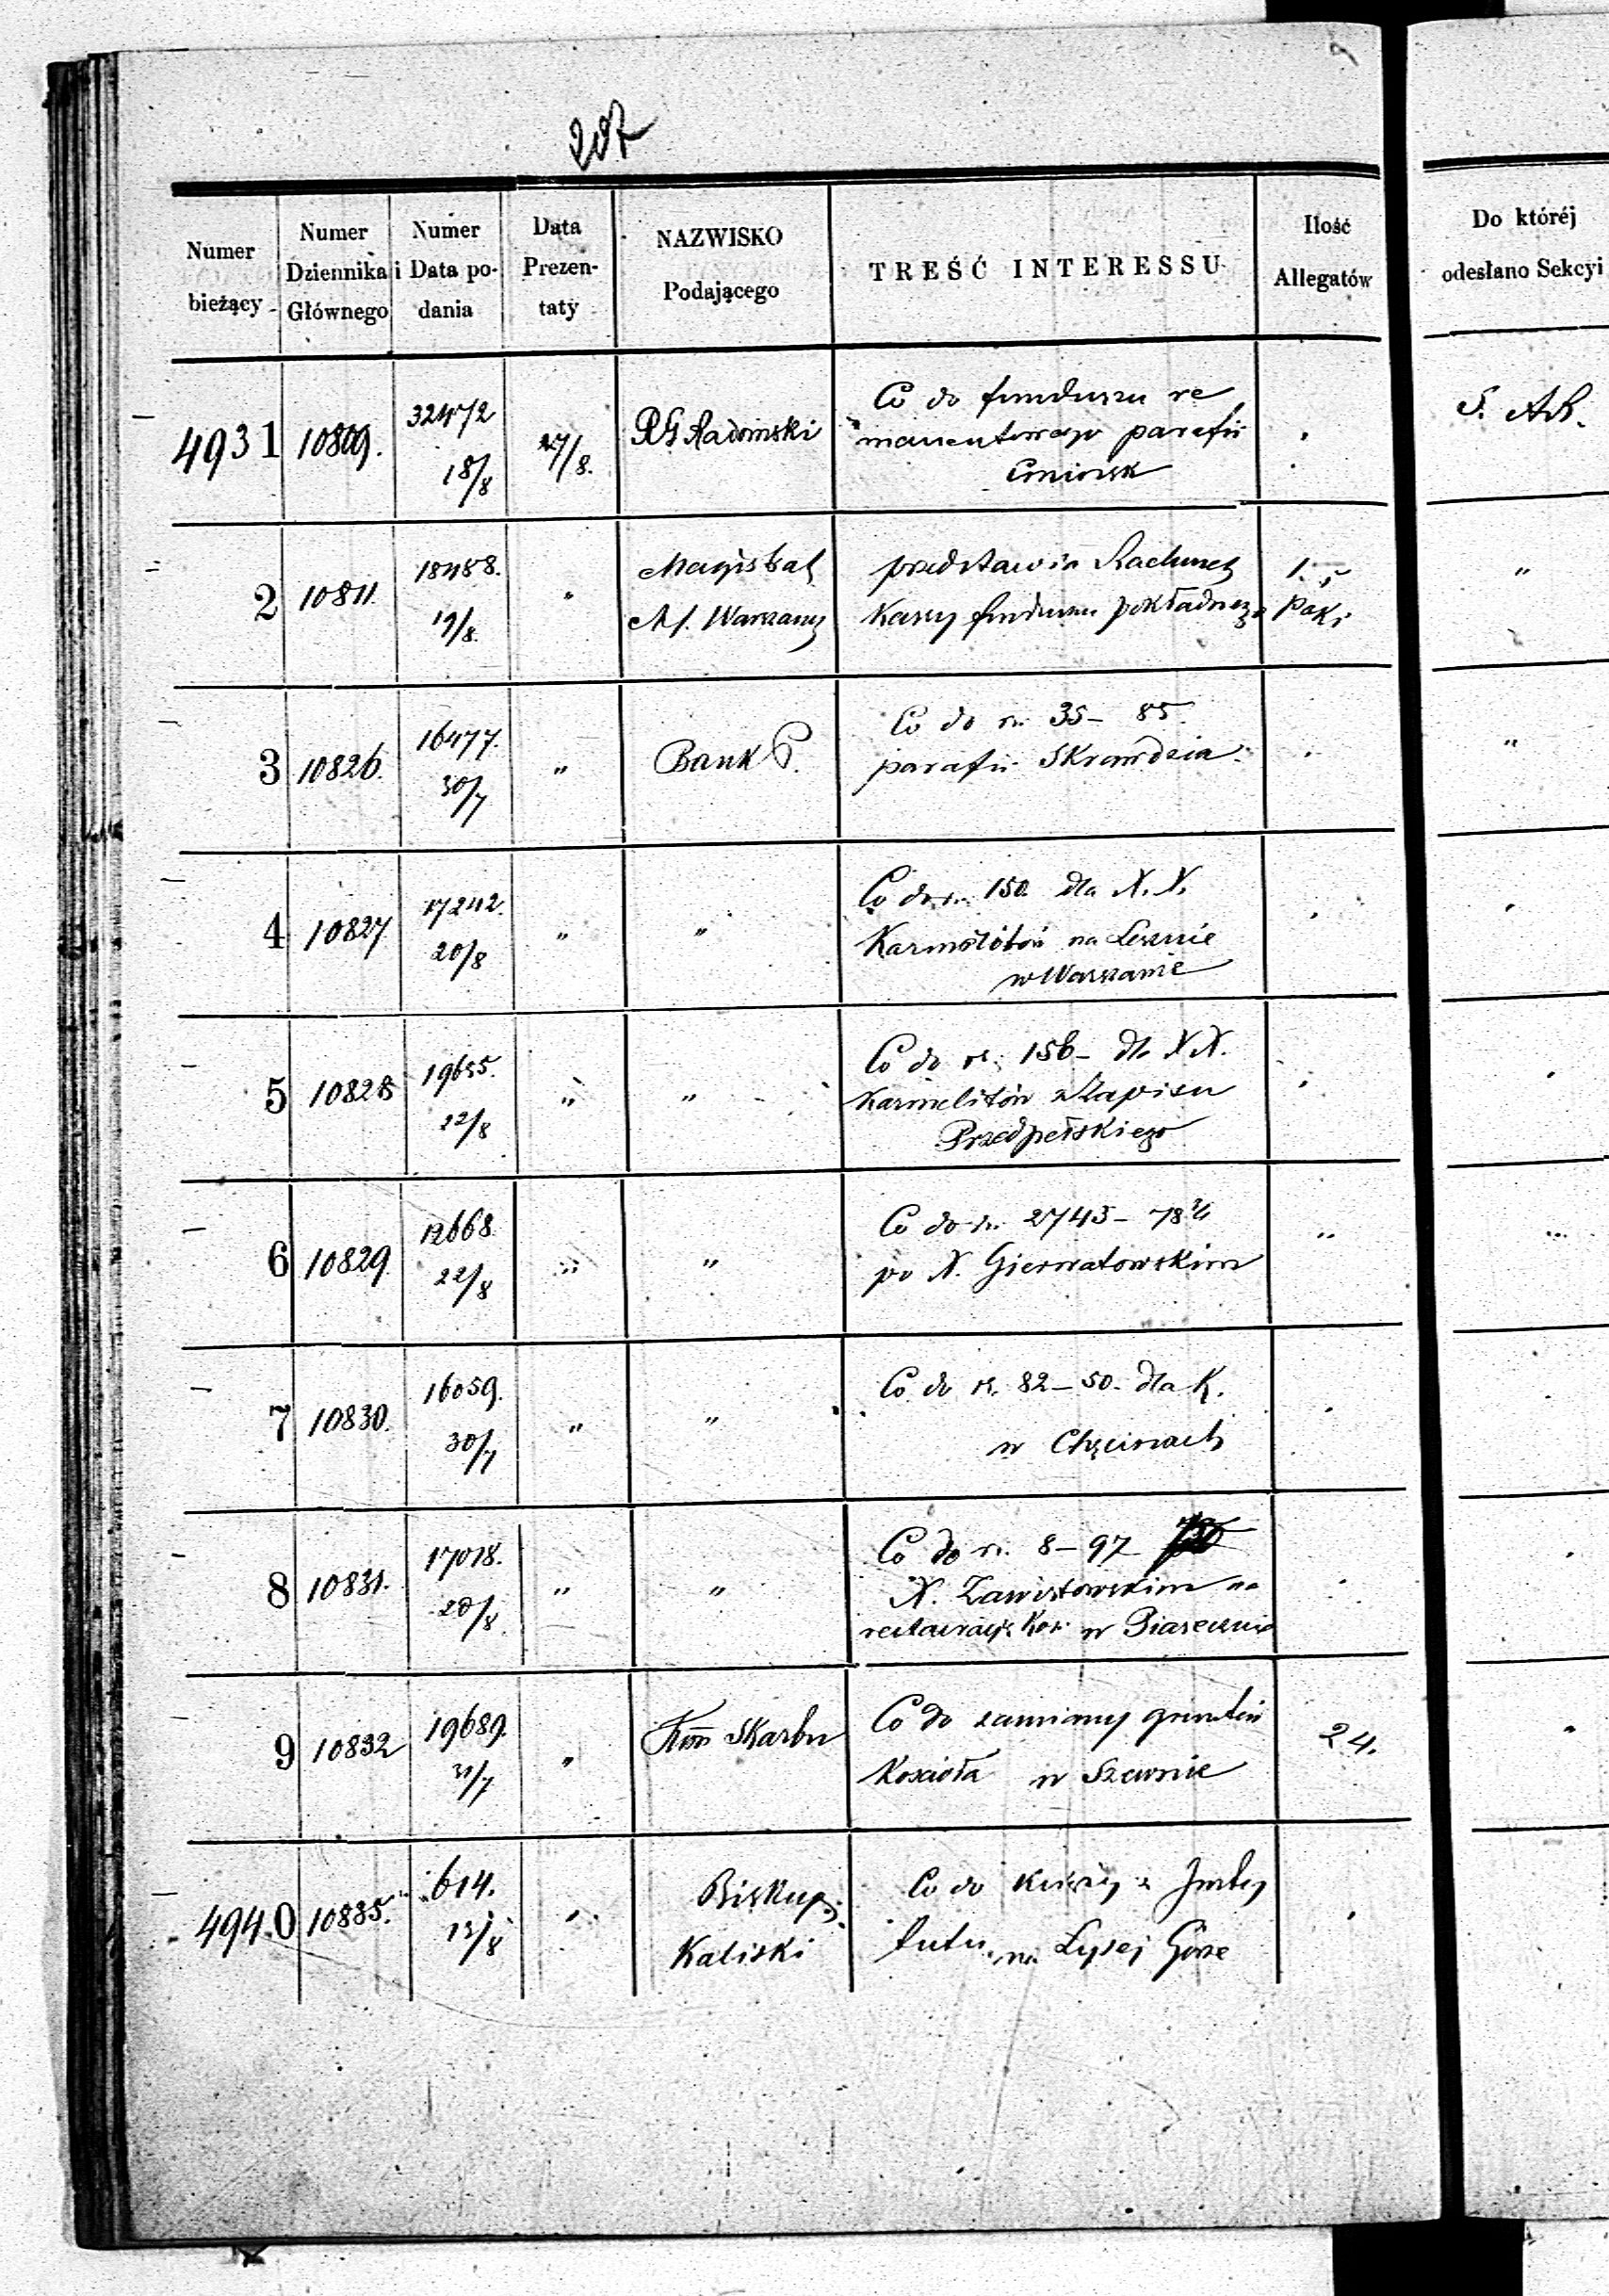 207
Numer bieżący
Numer Dziennika Głównego
Numer i Data podania
Data Prezentaty
NAZWISKO Podającego
TREŚĆ INTERESSU
Ilość Allegatów
Do któréj odesłano Sekcyi
4931 10809. 32472 18/8 27/8. RG Radomski
Co do funduszu re
manentowego parafii
S. AR.
2 10811. 18488. 19/8. " Magistrat
M. Warszawy
przedstawia Rachunek
Kassy funduszu pokładnego
1. Paka
"
3 10826. 16477. 30/7 " Bank P.
Co do rs. 35 – 85.
parafii Skrowdzia.
"
4 10827 17242. 20/8 " "
Co do rs. 150. dla X. X.
Karmelitów na Lesznie
w Warszawie
5 10828 19655. 22/8 " "
Co do rs. 156 – dla XX.
Karmelitów z Zapisu
Przedpełskiego
6 10829. 19668. 22/8 " "
Co do rs. 2743 – 78 3/4
po X. Gierwatowskim
"
7 10830. 16059. 30/7 " "
Co do rs. 82 – 50. dla K.
w Chęcinach
8 10831. 17018. 20/8. " "
Co do rs. 8 – 97
X. Zawistowskim na
restauracyę Koś. w Piasecznie
9 10832 19689. 31/7 " Kom Skarbu
Co do zamiany gruntów
Kościoła w Szewnie
24.
"
4940 10835. 614. 13/8 " Biskup
Kaliski
Co do Księży z Insty
tutu na Łysej Górze